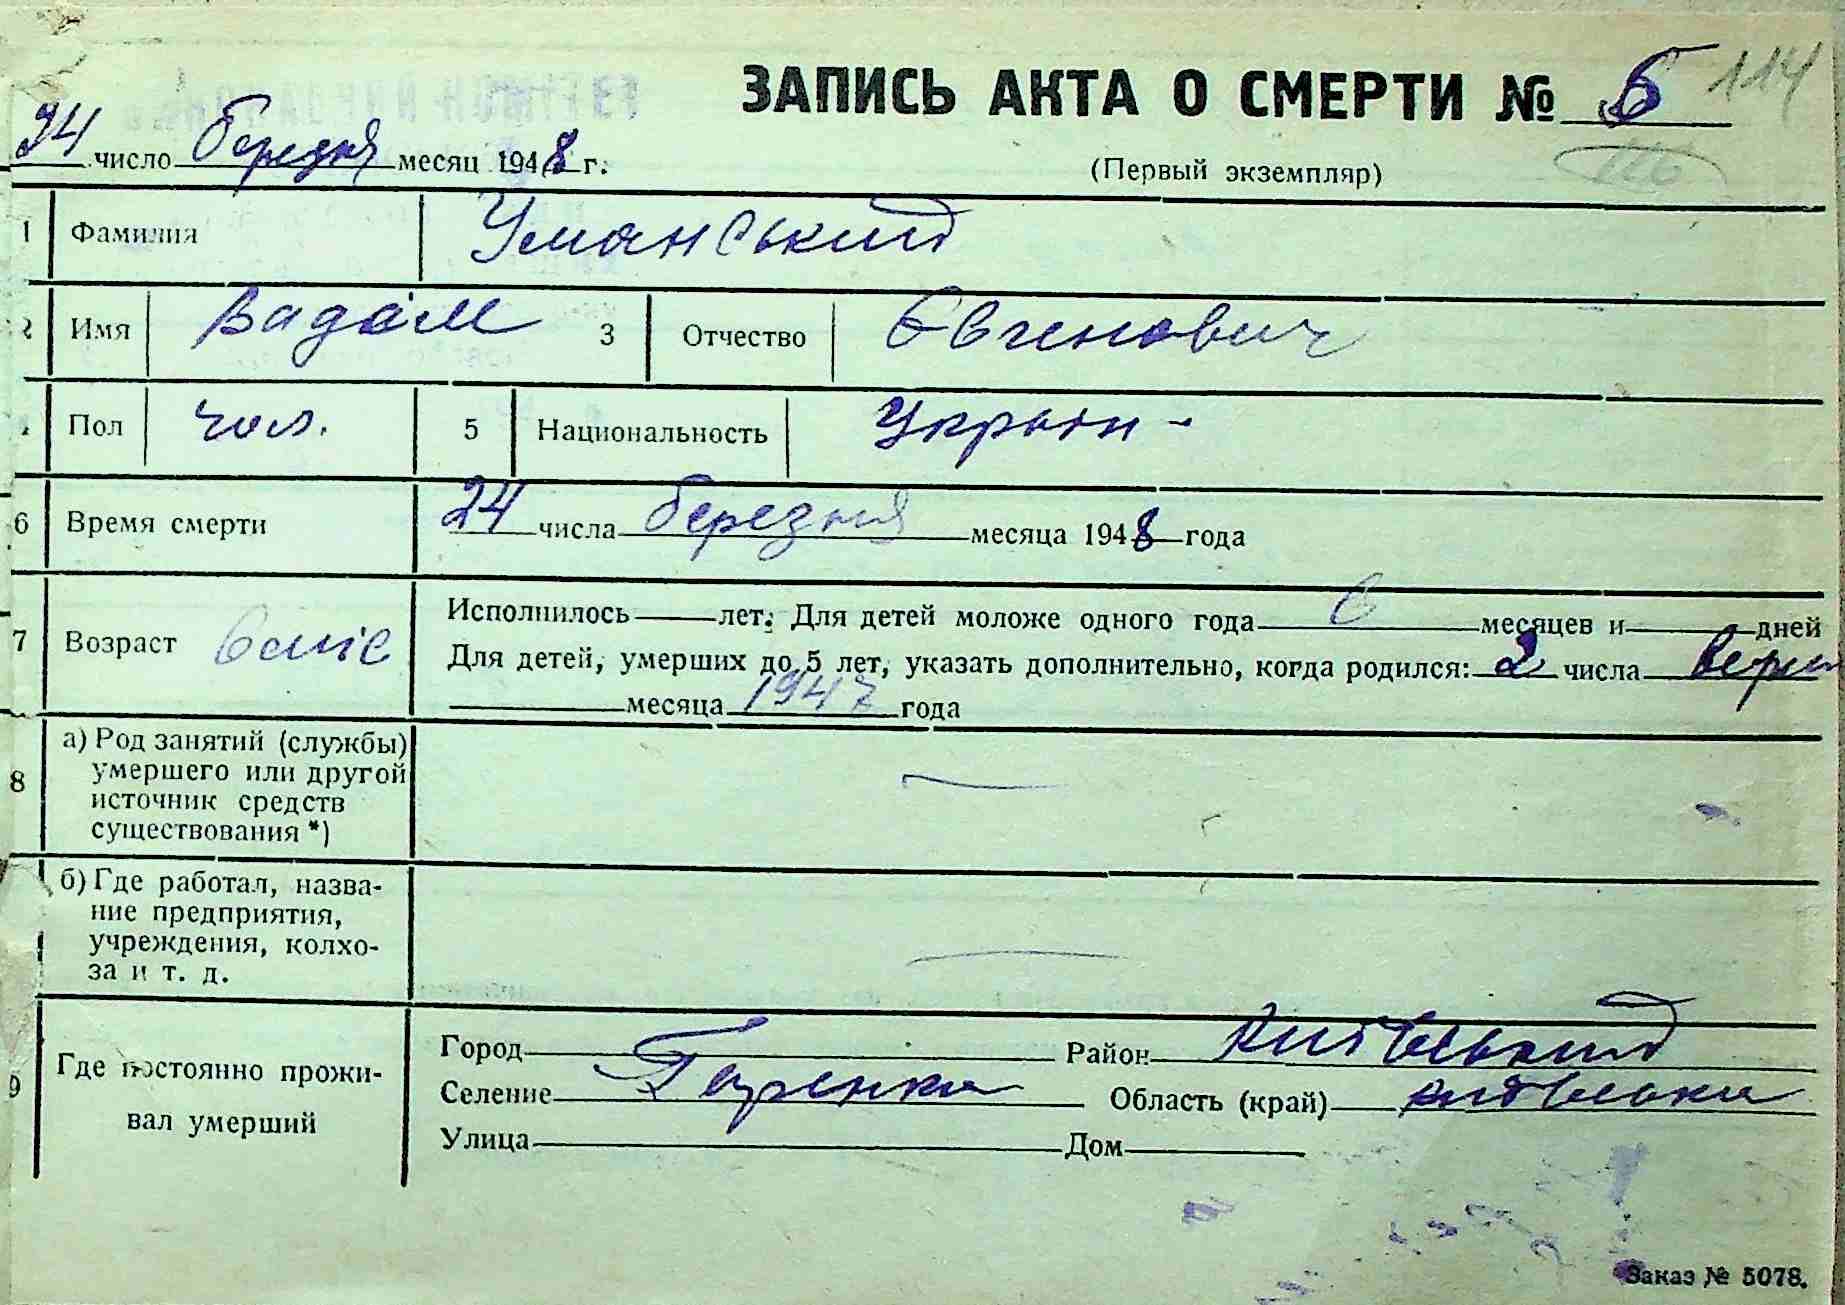 ЗАПИСЬ АКТА О СМЕРТИ № 6 114
24 число березня месяц 1948 г.
(Первый экземпляр) 116
1 Фамилия Уманський
2 Имя Вадим 3 Отчество Євгенович
Пол чол. 5 Национальность Украін-
6 Время смерти 24 числа березня месяца 1948 года
7 Возраст 6 міс
Исполнилось лет. Для детей моложе одного года 6 месяцев и дней
Для детей, умерших до 5 лет, указать дополнительно, когда родился: 2 числа Верес
месяца 1947 года
8 а) Род занятий (службы)
умершего или другой
источник средств
существования *) —
б) Где работал, назва-
ние предприятия,
учреждения, колхо-
за и т. д. —
9 Где постоянно прожи-
вал умерший
Город Район Київський
Селение Горенка Область (край) Київська
Улица Дом
Заказ № 5078.